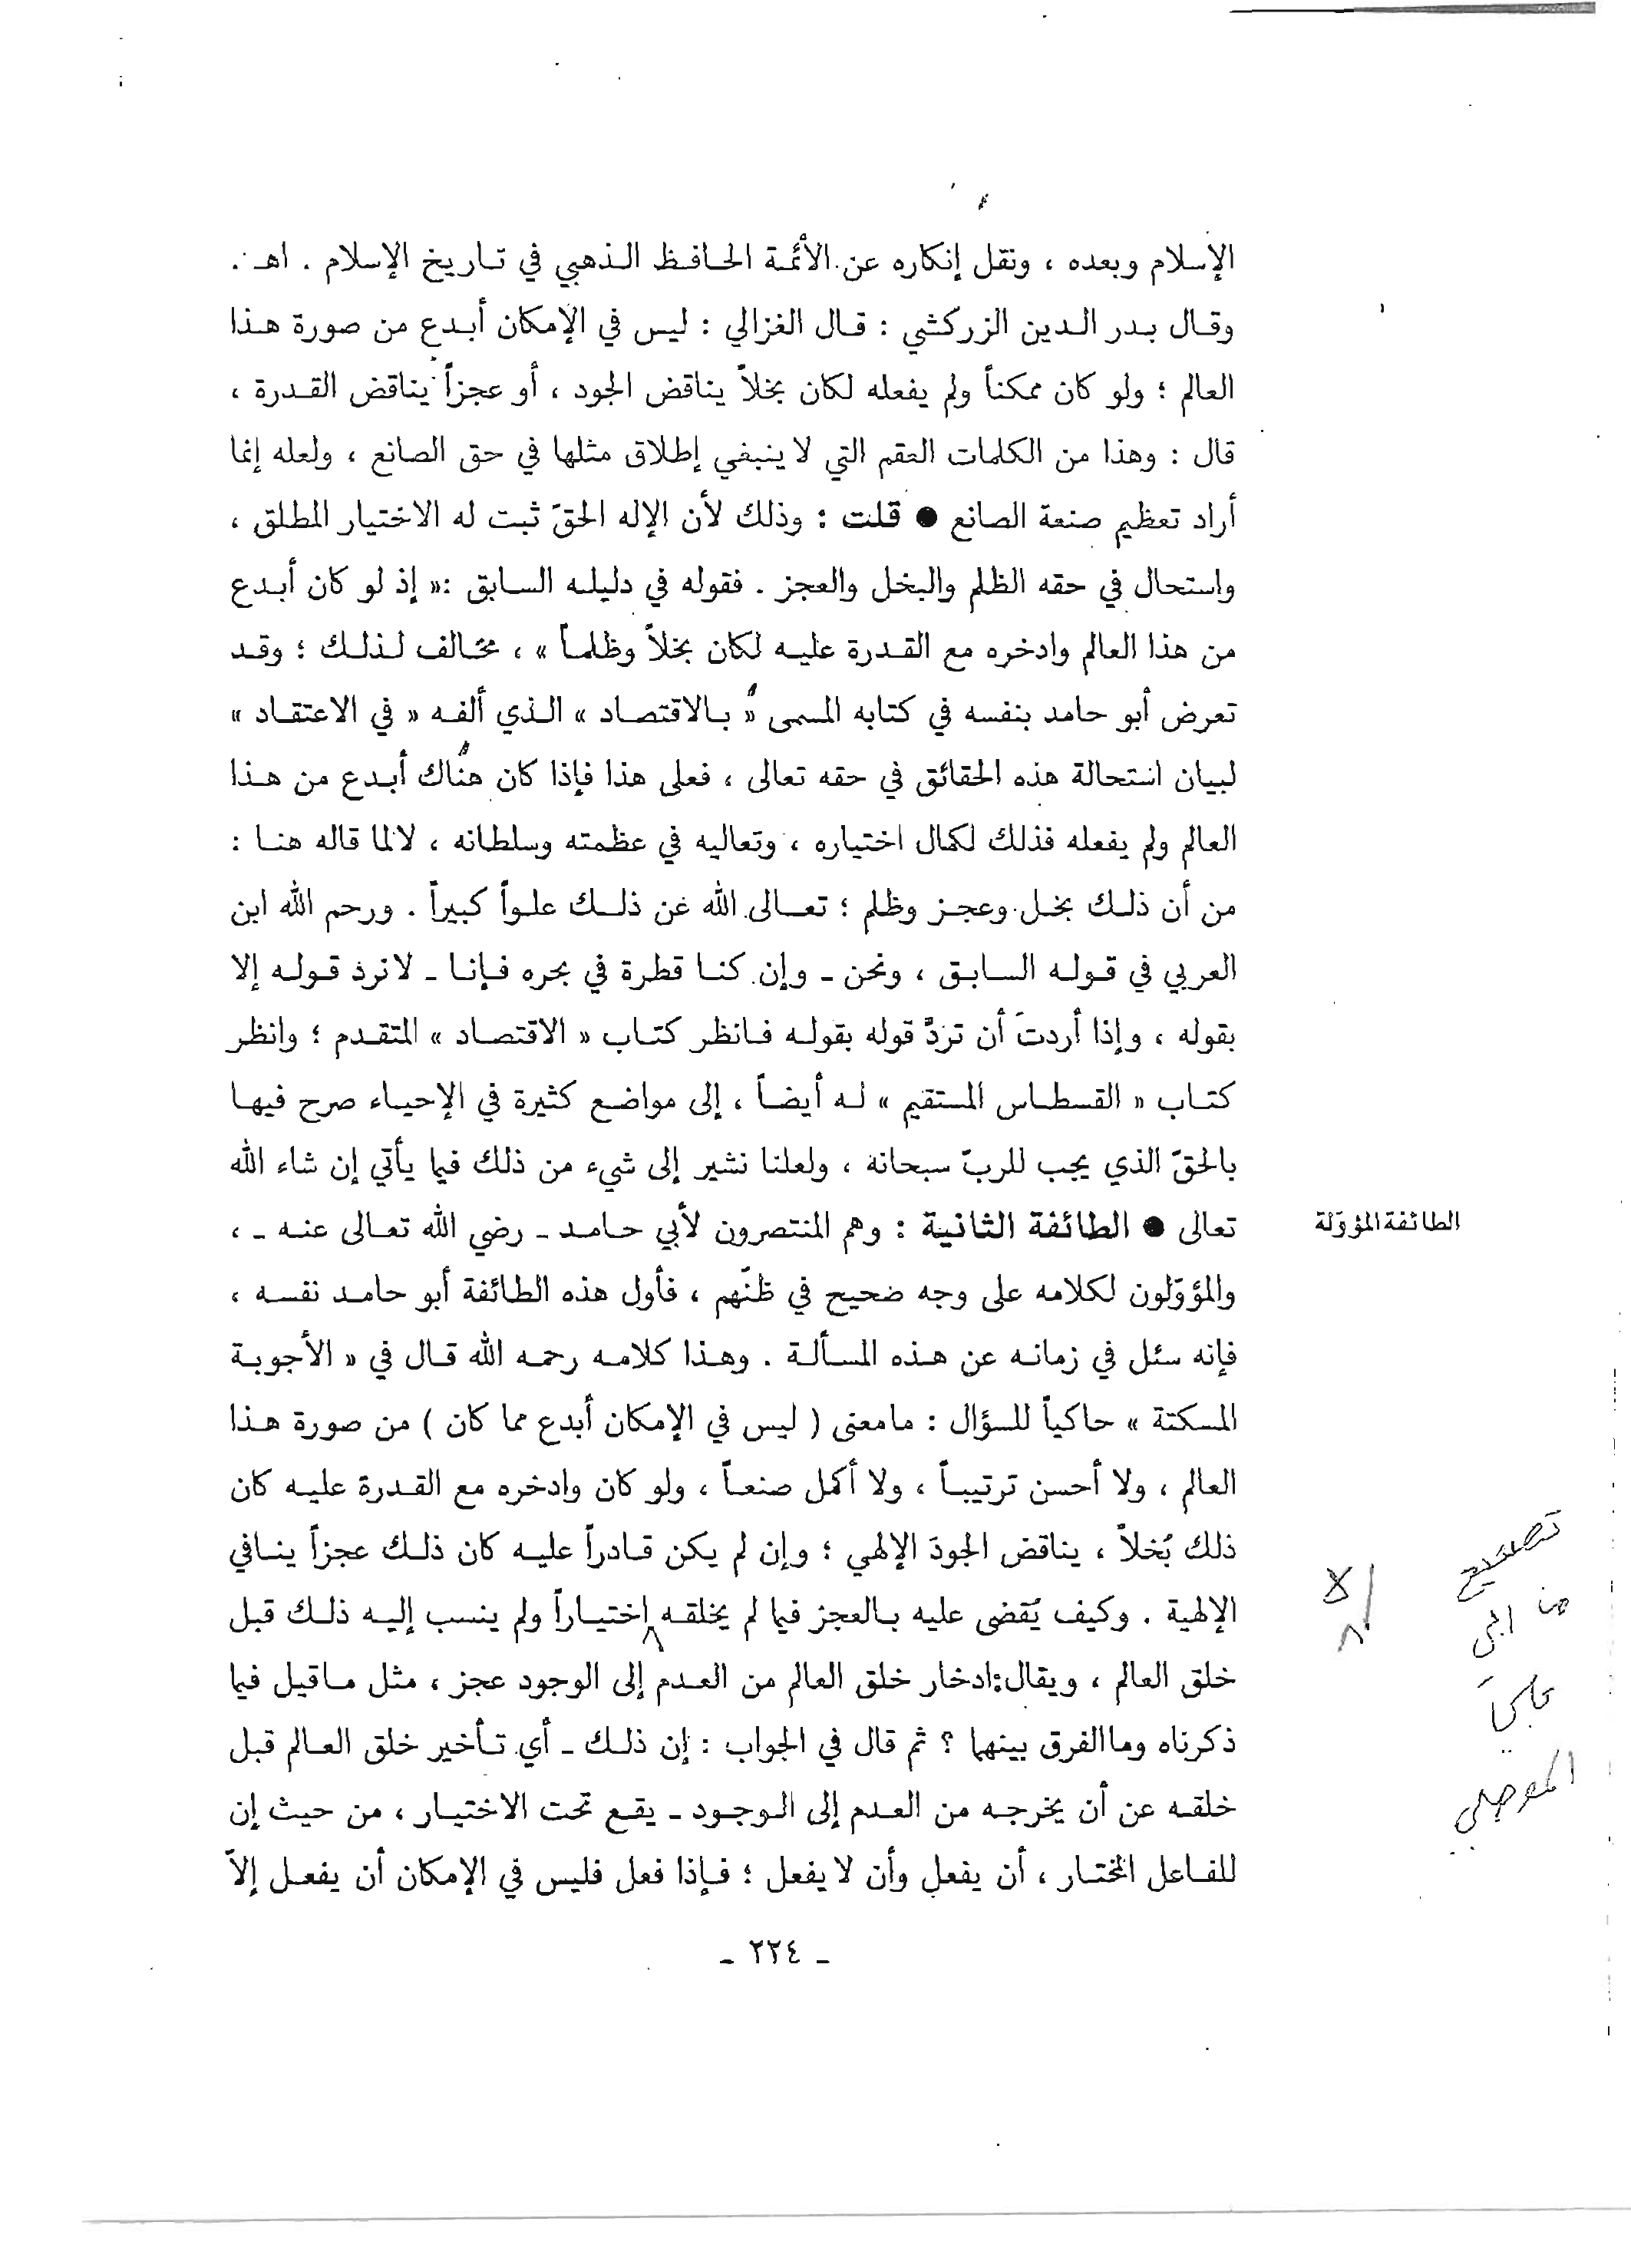 الإسلام وبعده ، ونقل إنكاره عن الأئمة الحافظ الذهبي في تاريخ الإسلام . اهـ .
وقال بدر الدين الزركشي : قال الغزالي : ليس في الإمكان أبدع من صورة هذا
العالم ؛ ولو كان ممكناً ولم يفعله لكان بخلاً يناقض الجود ، أو عجزاً يناقض القدرة ،
قال : وهذا من الكلمات العقم التي لا ينبغي إطلاق مثلها في حق الصانع ، ولعله إنما
أراد تعظيم صنعة الصانع ● قلت : وذلك لأن الإله الحقّ ثبت له الاختيار المطلق ،
واستحال في حقه الظلم والبخل والعجز . فقوله في دليله السابق :« إذ لو كان أبدع
من هذا العالم وادخره مع القدرة عليه لكان بخلاً وظلماً » ، مخالف لذلك ؛ وقد
تعرض أبو حامد بنفسه في كتابه المسمى « بالاقتصاد » الذي ألفه « في الاعتقاد »
لبيان استحالة هذه الحقائق في حقه تعالى ، فعلى هذا فإذا كان هناك أبدع من هذا
العالم ولم يفعله فذلك لكمال اختياره ، وتعاليه في عظمته وسلطانه ، لا لما قاله هنا :
من أن ذلك بخل وعجز وظلم ؛ تعالى الله عن ذلك علواً كبيراً . ورحم الله ابن
العربي في قوله السابق ، ونحن ـ وإن كنا قطرة في بحره فإنا ـ لا نرد قوله إلا
بقوله ، وإذا أردتَ أن تردَّ قوله بقوله فانظر كتاب « الاقتصاد » المتقدم ؛ وانظر
كتاب « القسطاس المستقيم » له أيضاً ، إلى مواضع كثيرة في الإحياء صرح فيها
بالحقّ الذي يجب للربّ سبحانه ، ولعلنا نشير إلى شيء من ذلك فيما يأتي إن شاء الله
تعالى ● الطائفة الثانية : وهم المنتصرون لأبي حامد ـ رضي الله تعالى عنه ـ ،
الطائفة المؤوّلة
والمؤوّلون لكلامه على وجه صحيح في ظنّهم ، فأول هذه الطائفة أبو حامد نفسه ،
فإنه سئل في زمانه عن هذه المسألة . وهذا كلامه رحمه الله قال في « الأجوبة
المسكتة » حاكياً للسؤال : ما معنى ( ليس في الإمكان أبدع مما كان ) من صورة هذا
العالم ، ولا أحسن ترتيباً ، ولا أكمل صنعاً ، ولو كان وادخره مع القدرة عليه كان
ذلك بُخلاً ، يناقض الجودَ الإلهي ؛ وإن لم يكن قادراً عليه كان ذلك عجزاً ينافي
الإلهية . وكيف يُقضى عليه بالعجز فيما لم يخلقه اختياراً ولم ينسب إليه ذلك قبل
لا
تصحيح
من
خلق العالم ، ويقال:ادخار خلق العالم من العدم إلى الوجود عجز ، مثل ما قيل فيما
ذكرناه وما الفرق بينهما ؟ ثم قال في الجواب : إن ذلك ـ أي تأخير خلق العالم قبل
خلقه عن أن يخرجه من العدم إلى الوجود ـ يقع تحت الاختيار ، من حيث إن
للفاعل المختار ، أن يفعل وأن لا يفعل ؛ فإذا فعل فليس في الإمكان أن يفعل إلاّ
ـ ٢٢٤ ـ